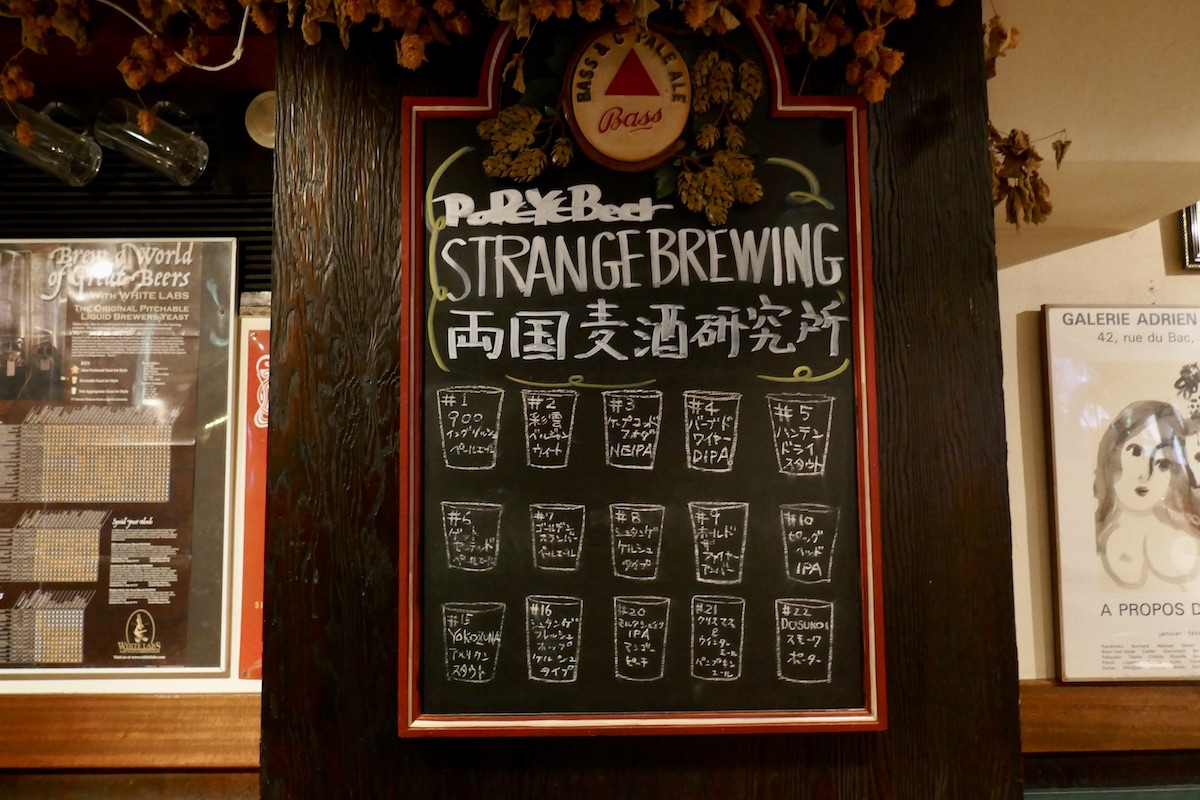 BASS & Co PALE ALE
Bass
POPEYE Beer
STRANGE BREWING
両国麦酒研究所
#1
900
イングリッシュ
ペールエール
#2
彩雪
ベルジャン
ウィート
#3
ケープコッド
フォグ
NEIPA
#4
バーブド
ワイヤー
DIPA
#5
ハンテン
ドライ
スタウト
#6
ペールエール
#7
ゴールデン
スランバー
ペールエール
#8
シュタンゲ
ケルシュ
タイプ
#9
ホールド
ザ
ファイヤー
アンバー
#10
ピッグ
ヘッド
IPA
#15
YOKOZUNA
アメリカン
スタウト
#16
シュタンゲ
フレッシュ
ホップ
ケルシュ
タイプ
#20
ミルクシェイク
IPA
マンゴー
ピーチ
#21
クリスマス
&
ウィンター
エール
パンプキン
エール
#22
DOSUKOI
スモーク
ポーター
Brew a World
of Great Beers
WITH WHITE LABS
THE ORIGINAL PITCHABLE
LIQUID BREWERS YEAST
WHITE LABS
GALERIE ADRIEN
42, rue du Bac,
A PROPOS D